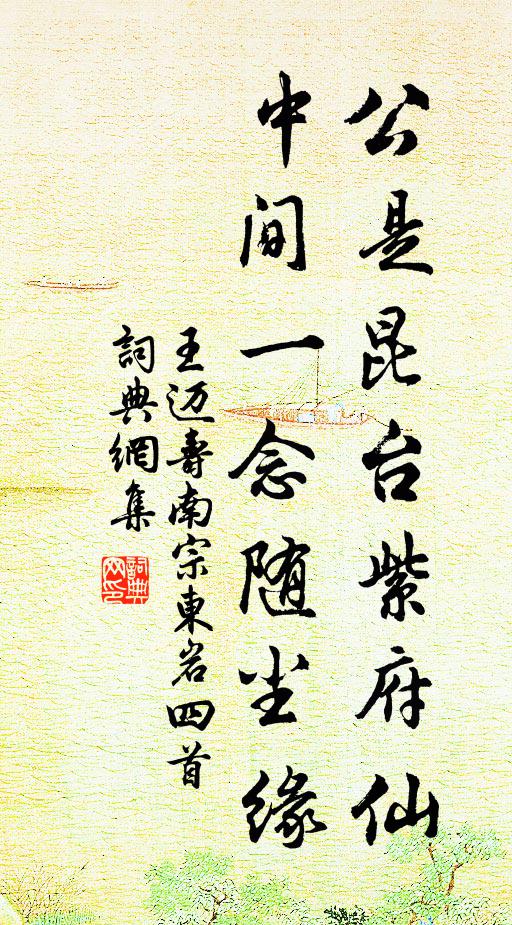 公是昆台紫府仙
中间一念随尘缘
王迈寿南宗東岩四首
詞典網集
詞典
网印